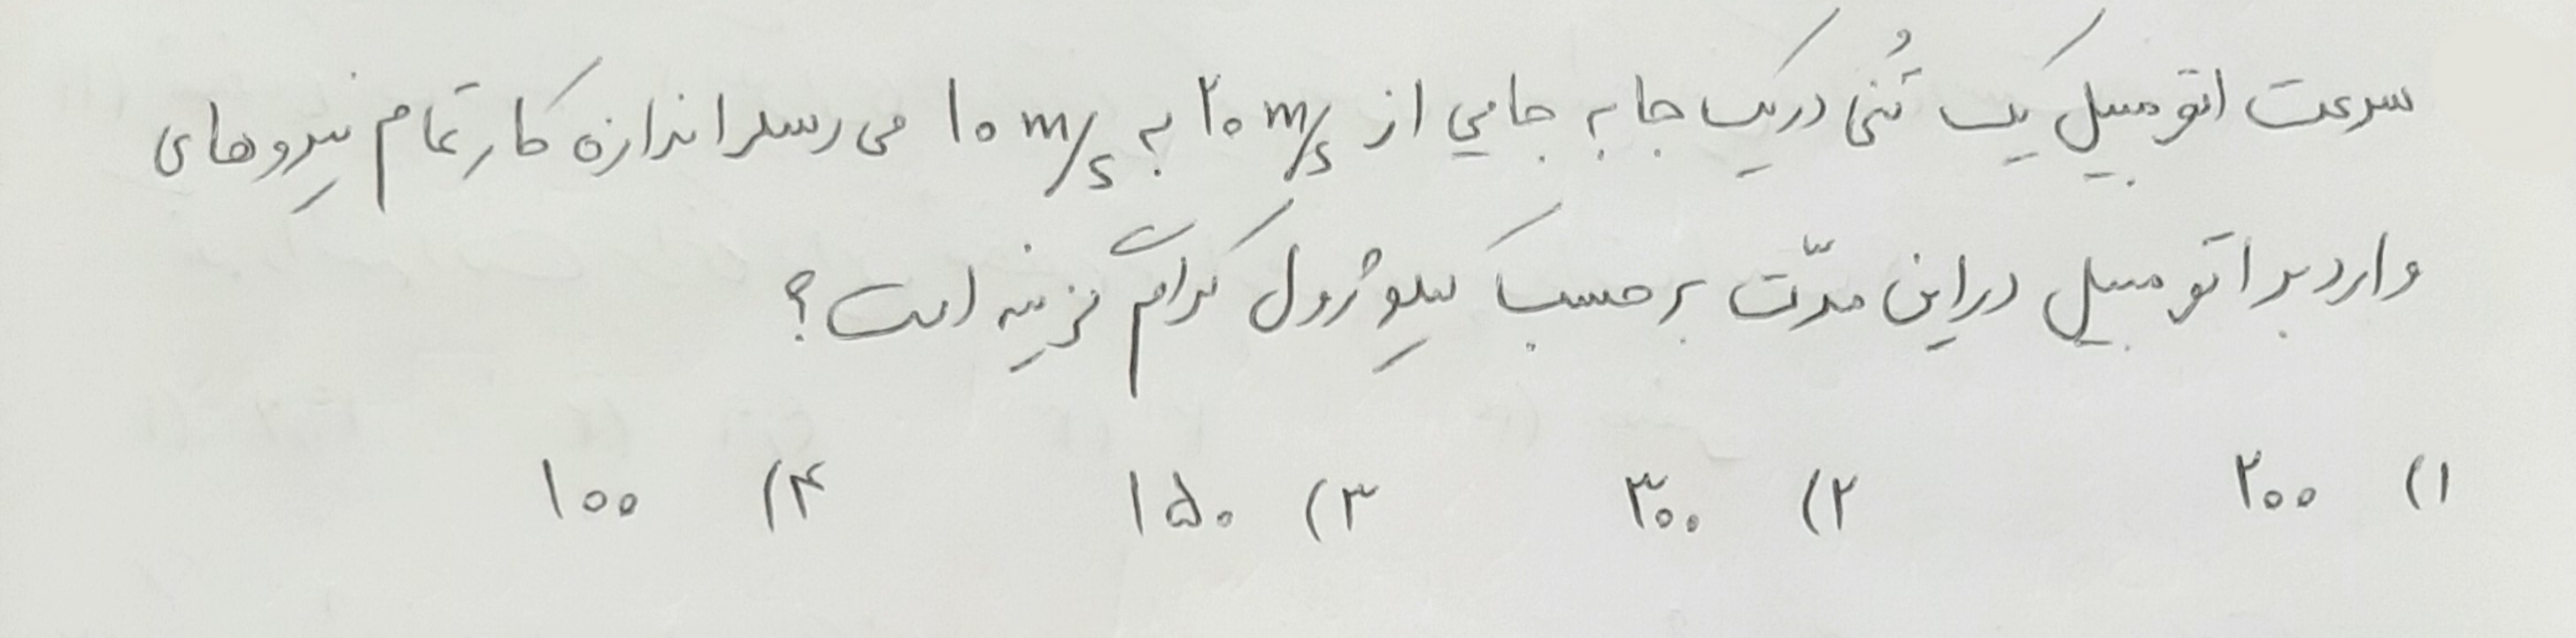 سرعت اتومبیل یک تُنی در یک جا به جایی از ۲۰ m/s به ۱۰ m/s می رسد اندازه کار تمام نیروهای
وارد بر اتومبیل در این مدّت بر حسب کیلوژول کدام گزینه است؟
۱) ۲۰۰ ۲) ۳۰۰ ۳) ۱۵۰ ۴) ۱۰۰